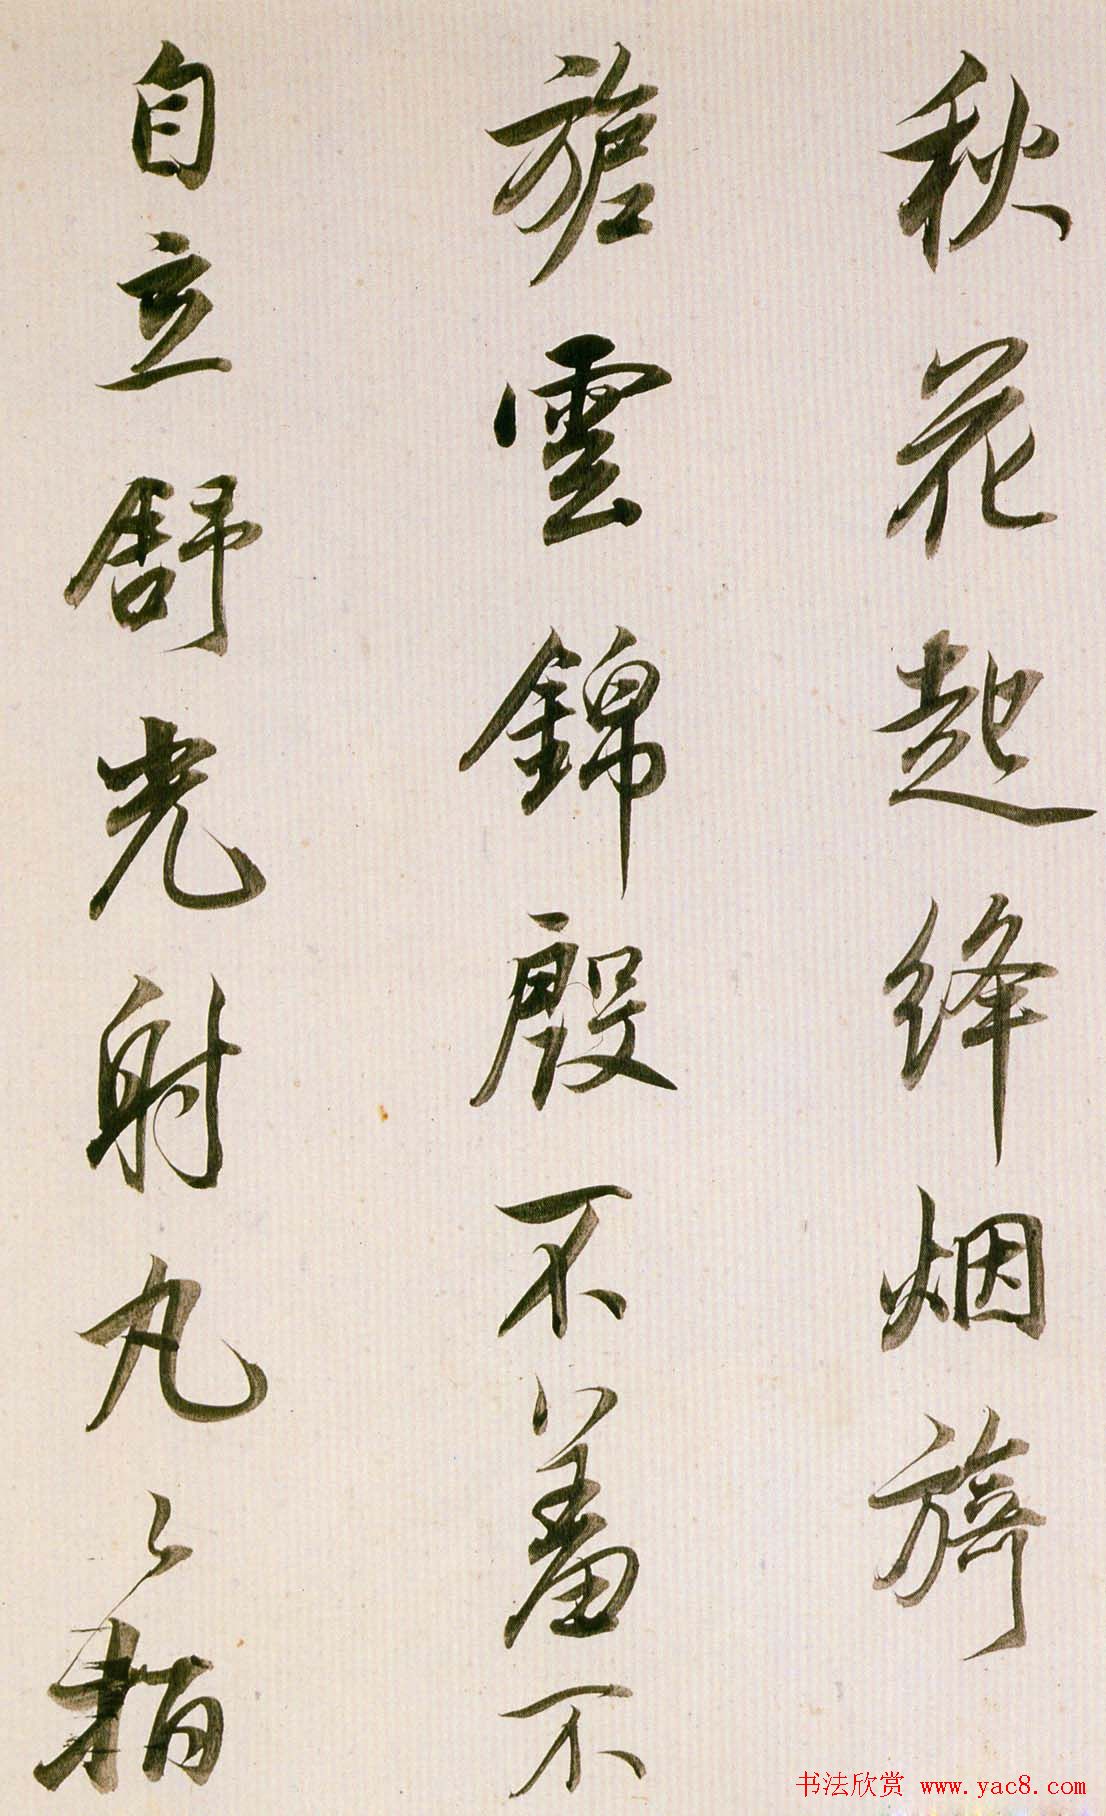 秋花起絳烟旖
旎雲錦殷不羞不
自立舒光射丸々柏
书法欣赏 www.yac8.com